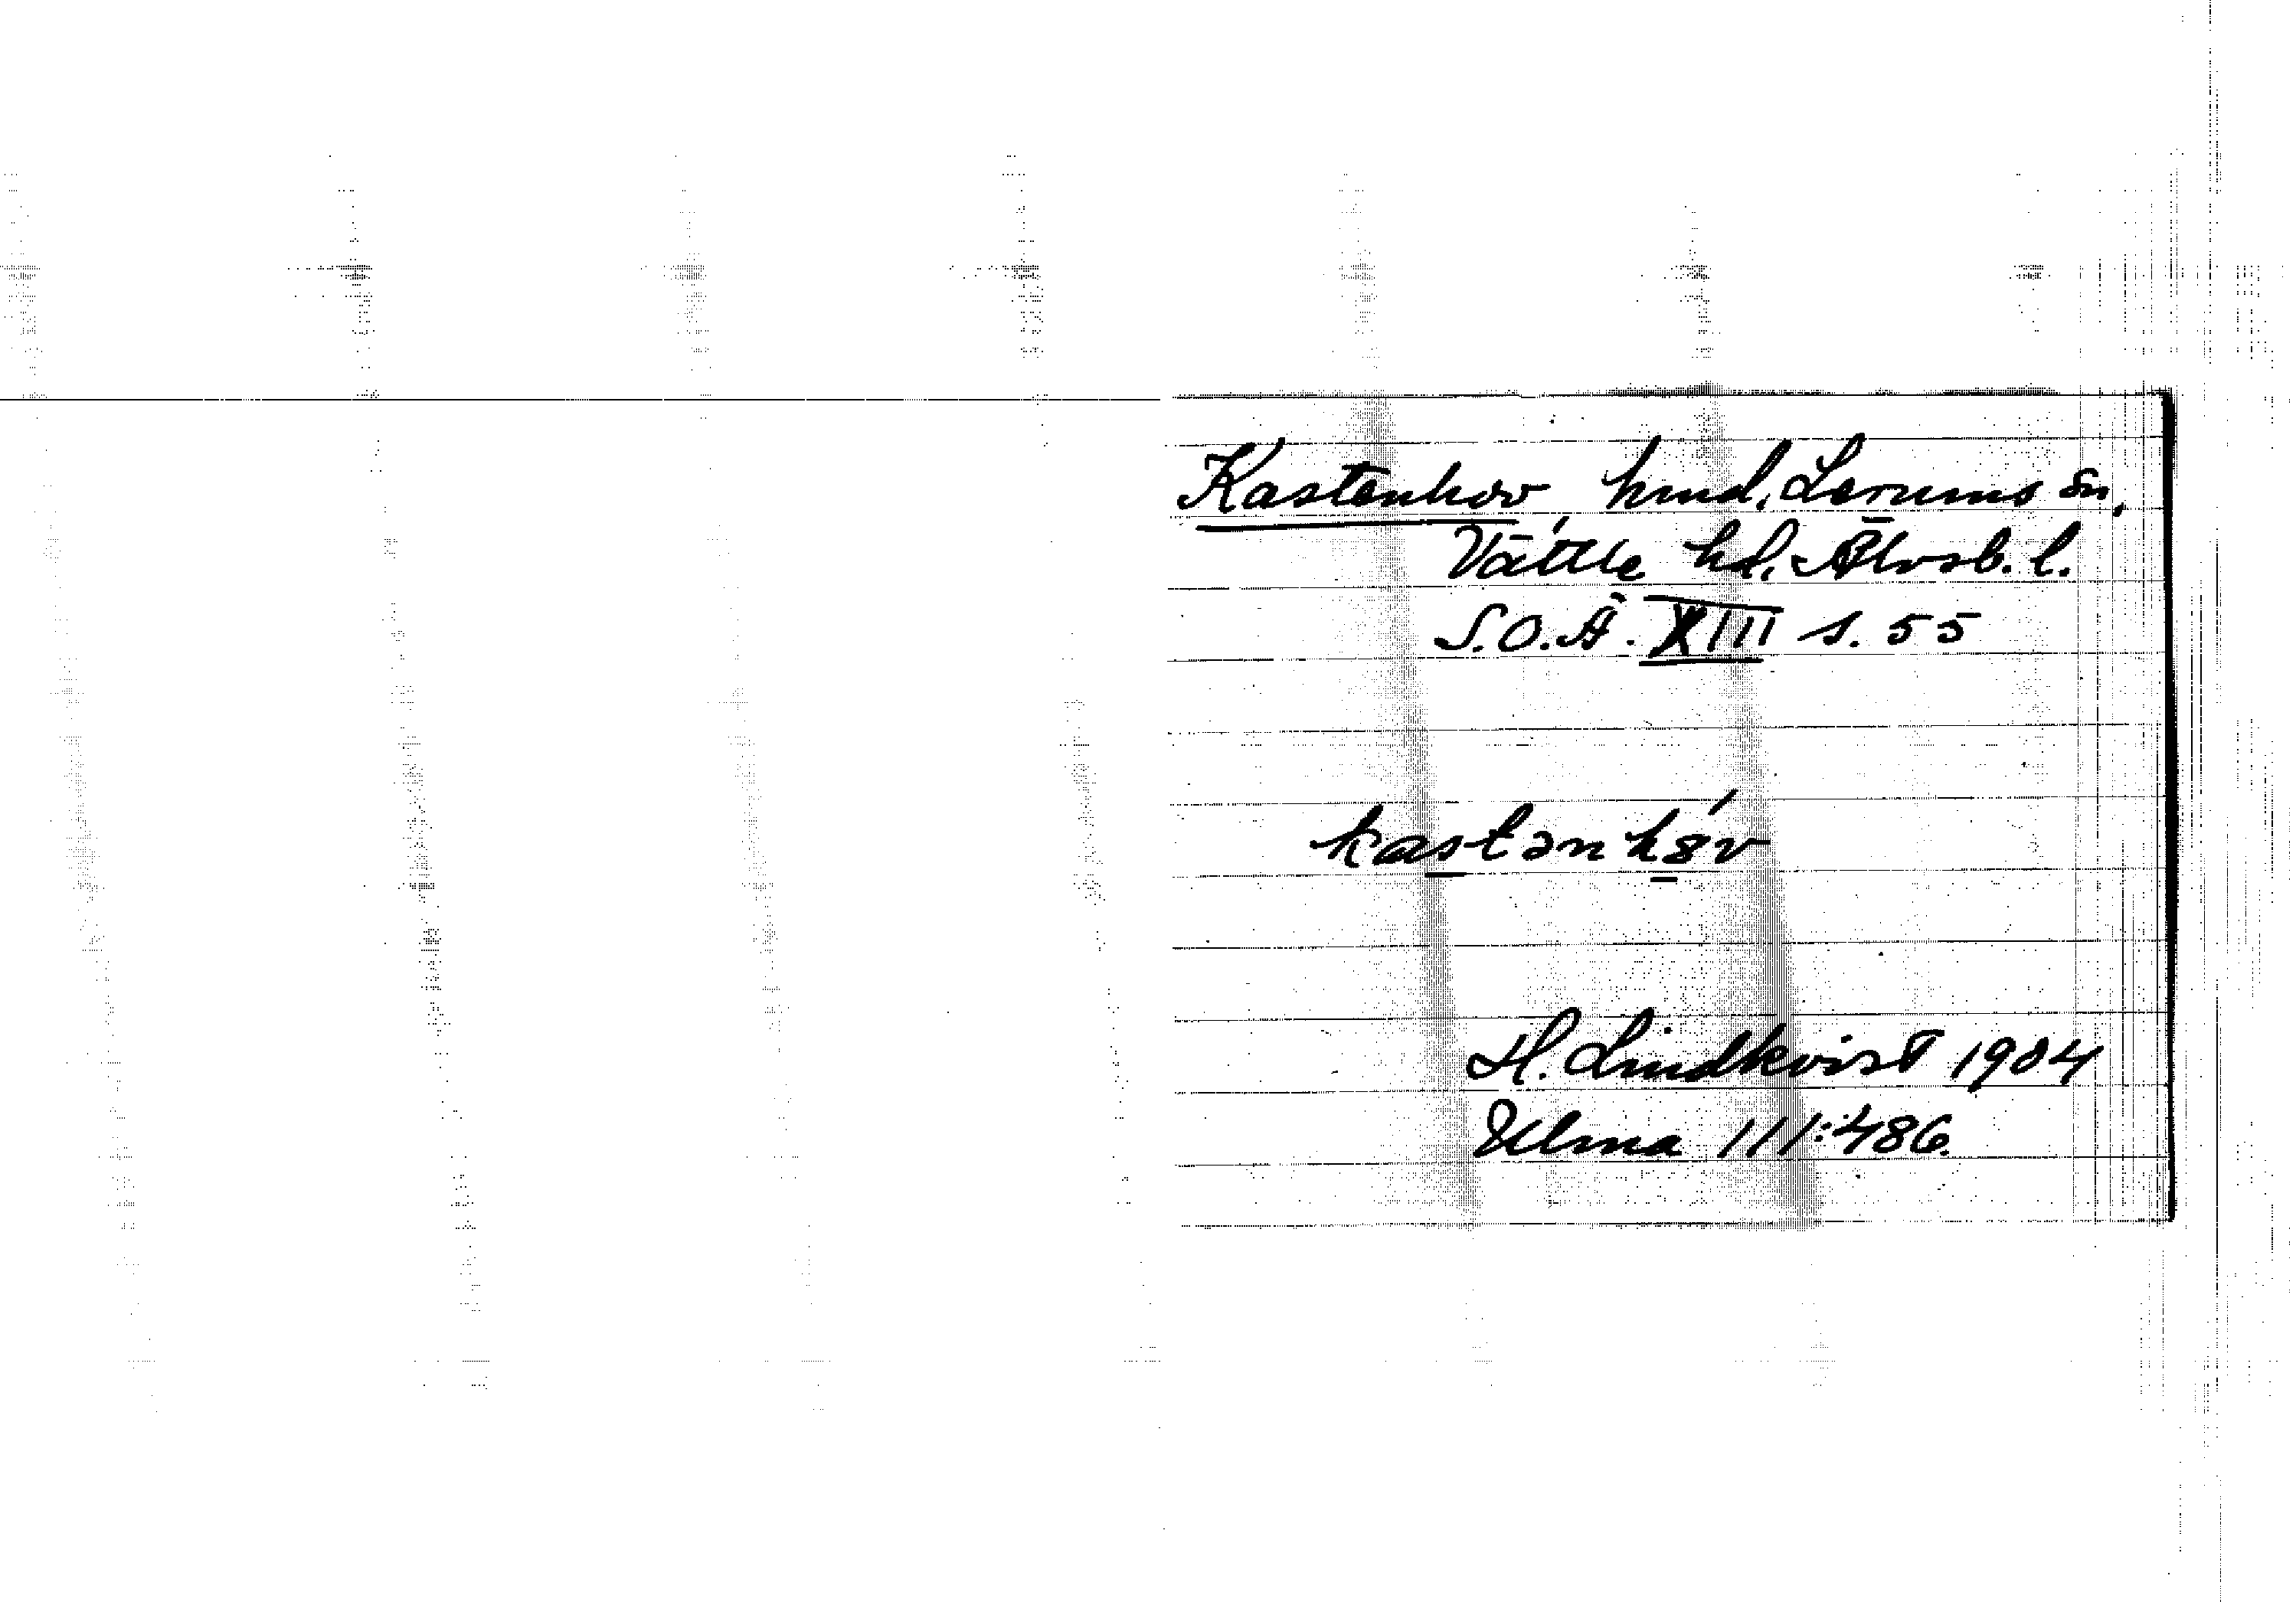 Kastenhov, hmd, Lerums sn,
Vättle hd, Älvsb. l.
S.O.Ä. XIII s. 55
kastənhȣ́v
H. Lindkvist 1904
Ulma 111:486.